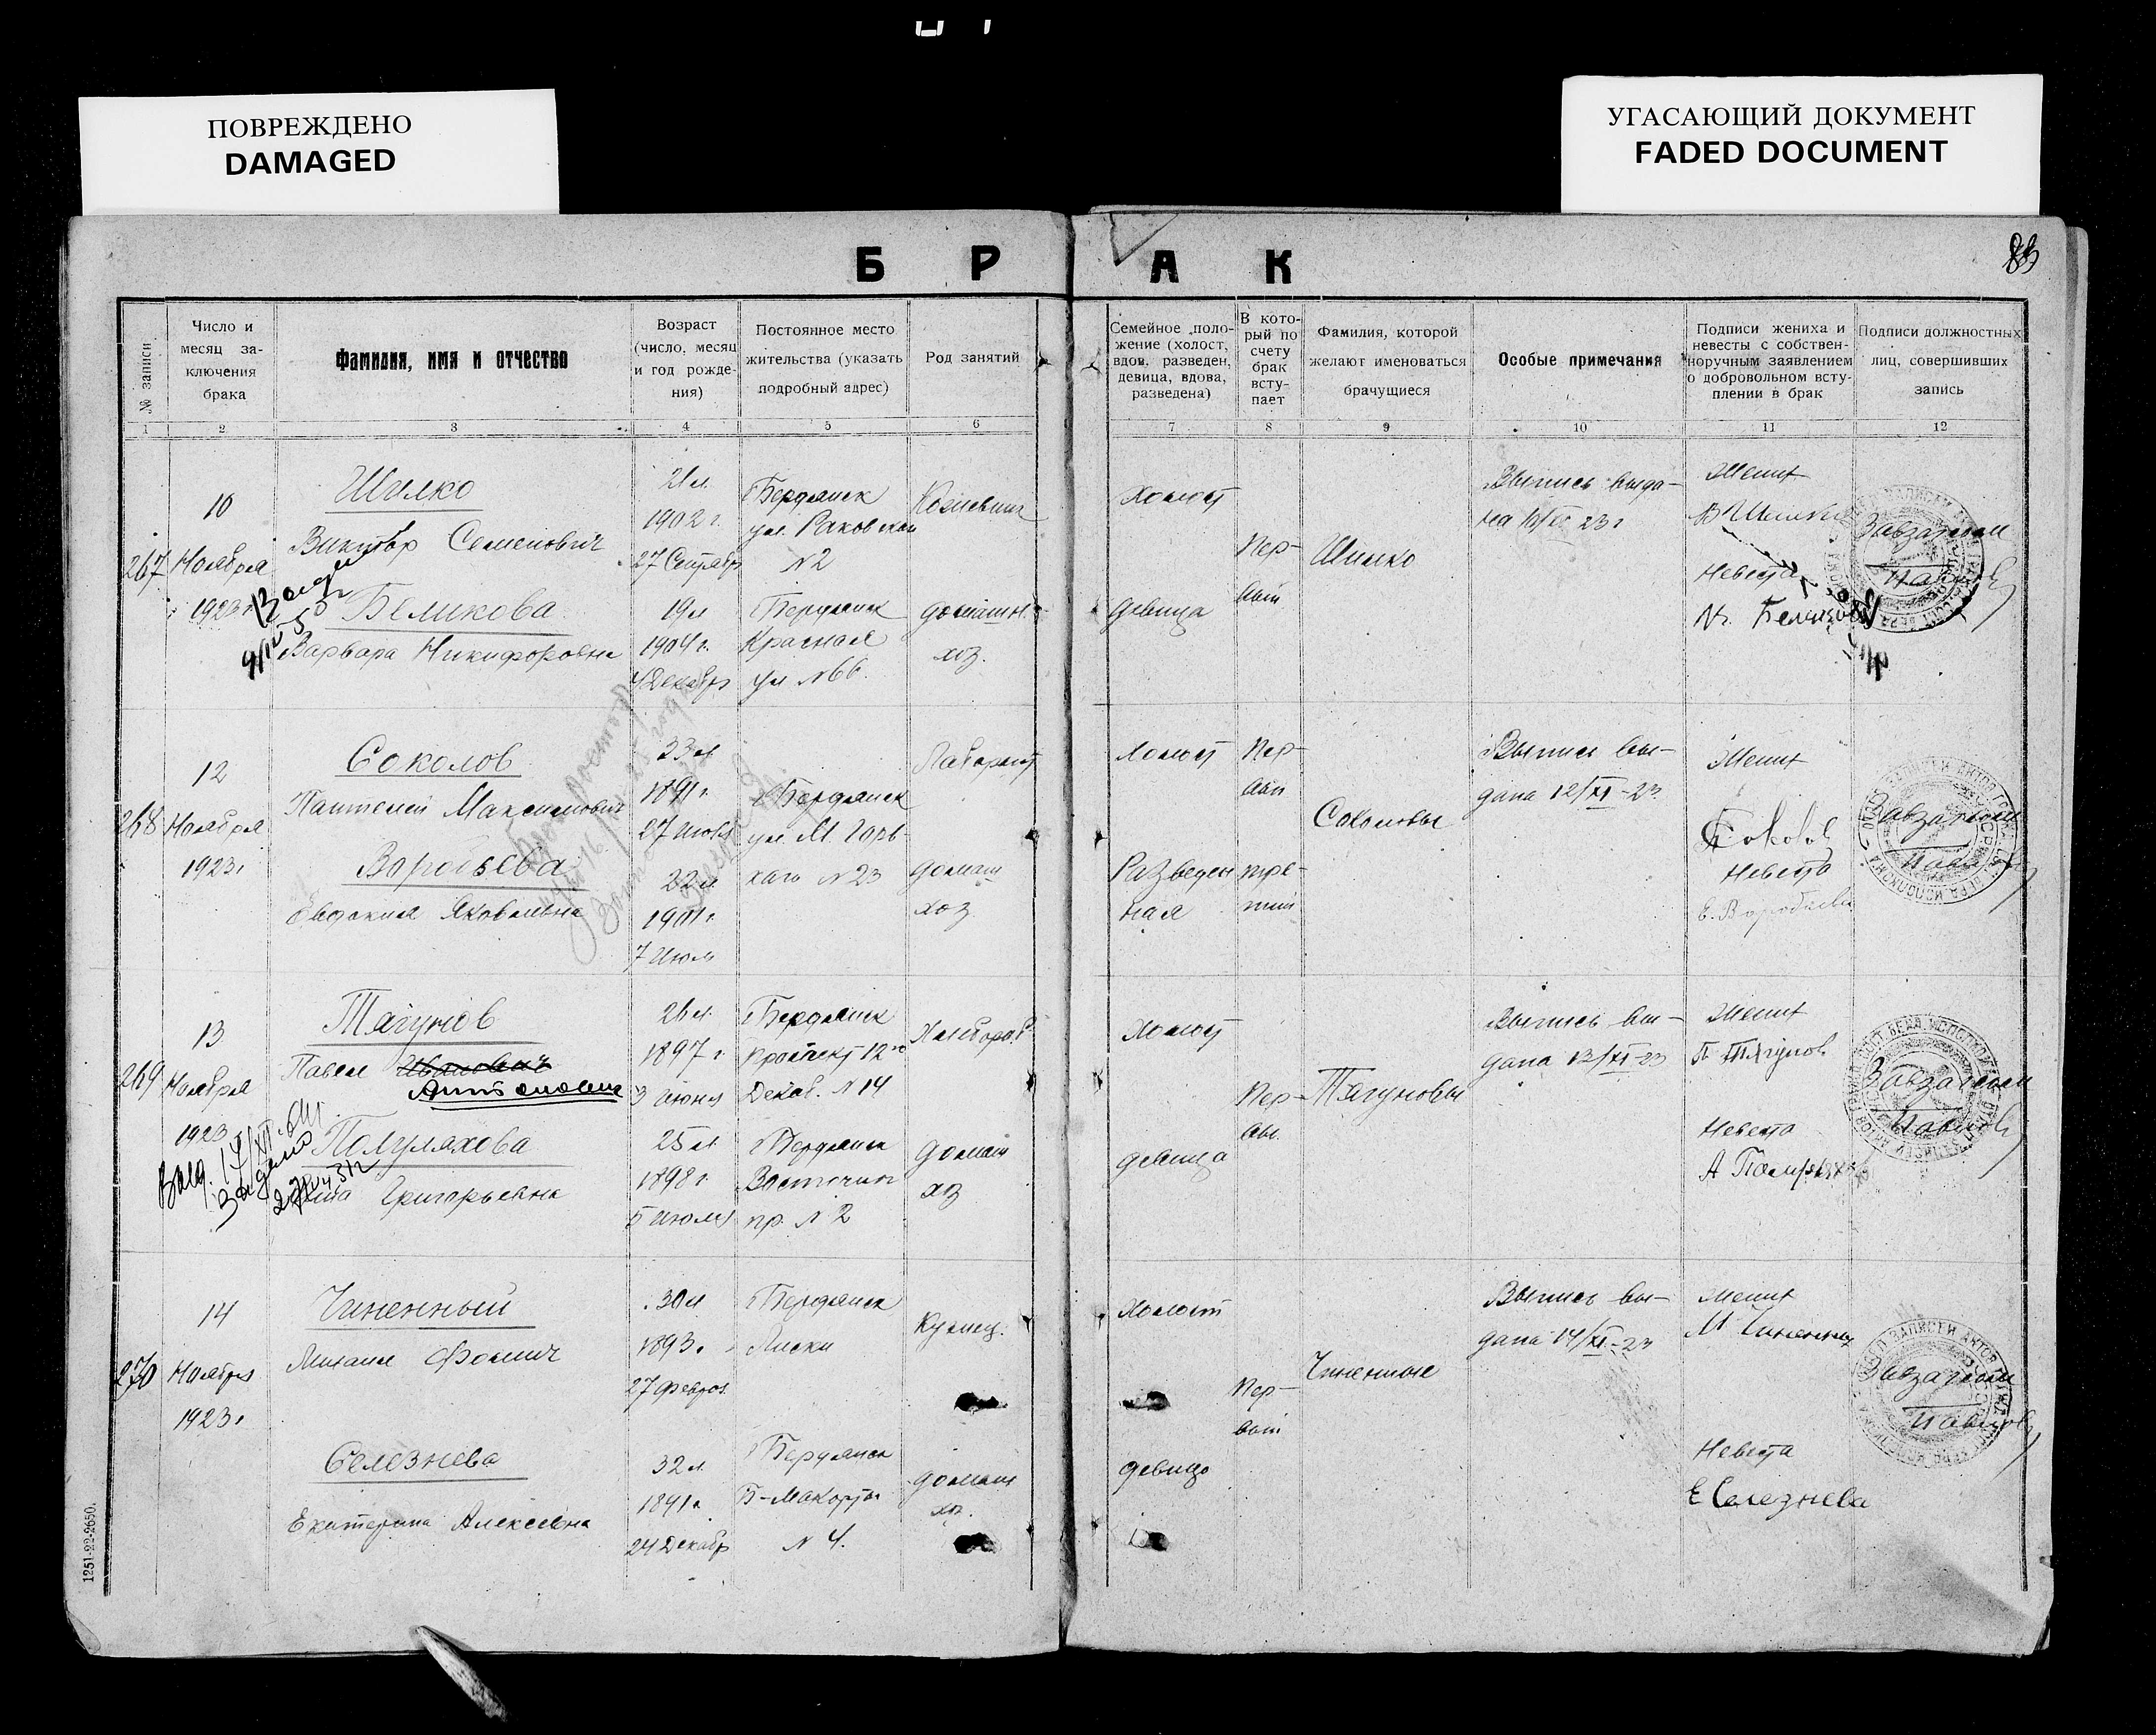 ПОВРЕЖДЕНО
DAMAGED
УГАСАЮЩИЙ ДОКУМЕНТ
FADED DOCUMENT
83
Б Р А К
№ записи
Число и
месяц за-
ключения
брака
Фамилия, имя и отчество
Возраст
(число, месяц
и год рожде-
ния)
Постоянное место
жительства (указать
подробный адрес)
Род занятий
Семейное поло-
жение (холост,
вдов, разведен,
девица, вдова,
разведена)
В кото-
рый по
счету
брак
всту-
пает
Фамилия, которой
желают именоваться
брачущиеся
Особые примечания
Подписи жениха и
невесты с собствен-
норучным заявлением
о добровольном всту-
плении в брак
Подписи должностных
лиц, совершивших
запись
1 2 3 4 5 6 7 8 9 10 11 12
267
10
Ноября
1923 г.
Шилко
Виктор Семенович
Беликова
Варвара Никифоровна
21 л.
1902 г.
27 Сентябр
19 л
1904 г.
4 Декабр
Бердянск
ул. Раковской
№2
Бердянск
Красная
ул №66.
домашн.
хоз.
Холост
девица
Пер-
вый
Шилко
Выпись выда-
на 10/XI 23 г
Жених
В Шилко
Невеста
Беликова
Завзагсом
268
12
Ноября
1923 г.
Соколов
Пантелей Максимович
Воробьева
Евдокия Яковлевна
1891 г.
22 л.
1901 г.
7 Июля
Бердянск
ул. М. Горь-
каго №23
Лаборант
домаш
хоз
Холост
Разведен
ная
Пер-
вый
тре-
тий
Соколовы
Выпись вы-
дана 12/XI-23
Жених
Соколов
Невеста
Е. Воробьева
Завзагсом
269
13
Ноября
1923
Тягунов
Павел Иванович
Антонович
Полуляхова
Григорьевна
26 л.
1897 г.
3 Июня
25 л.
1898 г.
5 Июля
Бердянск
Проспект 12го
Декаб. №14
Бердянск
Восточный
пр. №2
Хлебороб
домаш
хоз
Холост
девица
Пер-
вы.
Тягуновы
Выпись вы-
дана 13/XI-23
Жених
П Тягунов
Невеста
Завзагсом
270
14
Ноября
1923 г.
Чиненный
Михаил Фомич
Селезнева
Екатерина Алексеевна
30 л
1893 г.
27 Феврал.
32 л.
1891 г.
24 Декабр
Бердянск
Лиски
Бердянск
№4.
Кузнец.
домаш
хоз.
Холост
девица
Пер-
вый
Чиненные
Выпись вы-
дана 14/XI-23
Жених
М Чиненный
Невеста
Е Селезнева
Завзагсом
1251-22-2650.